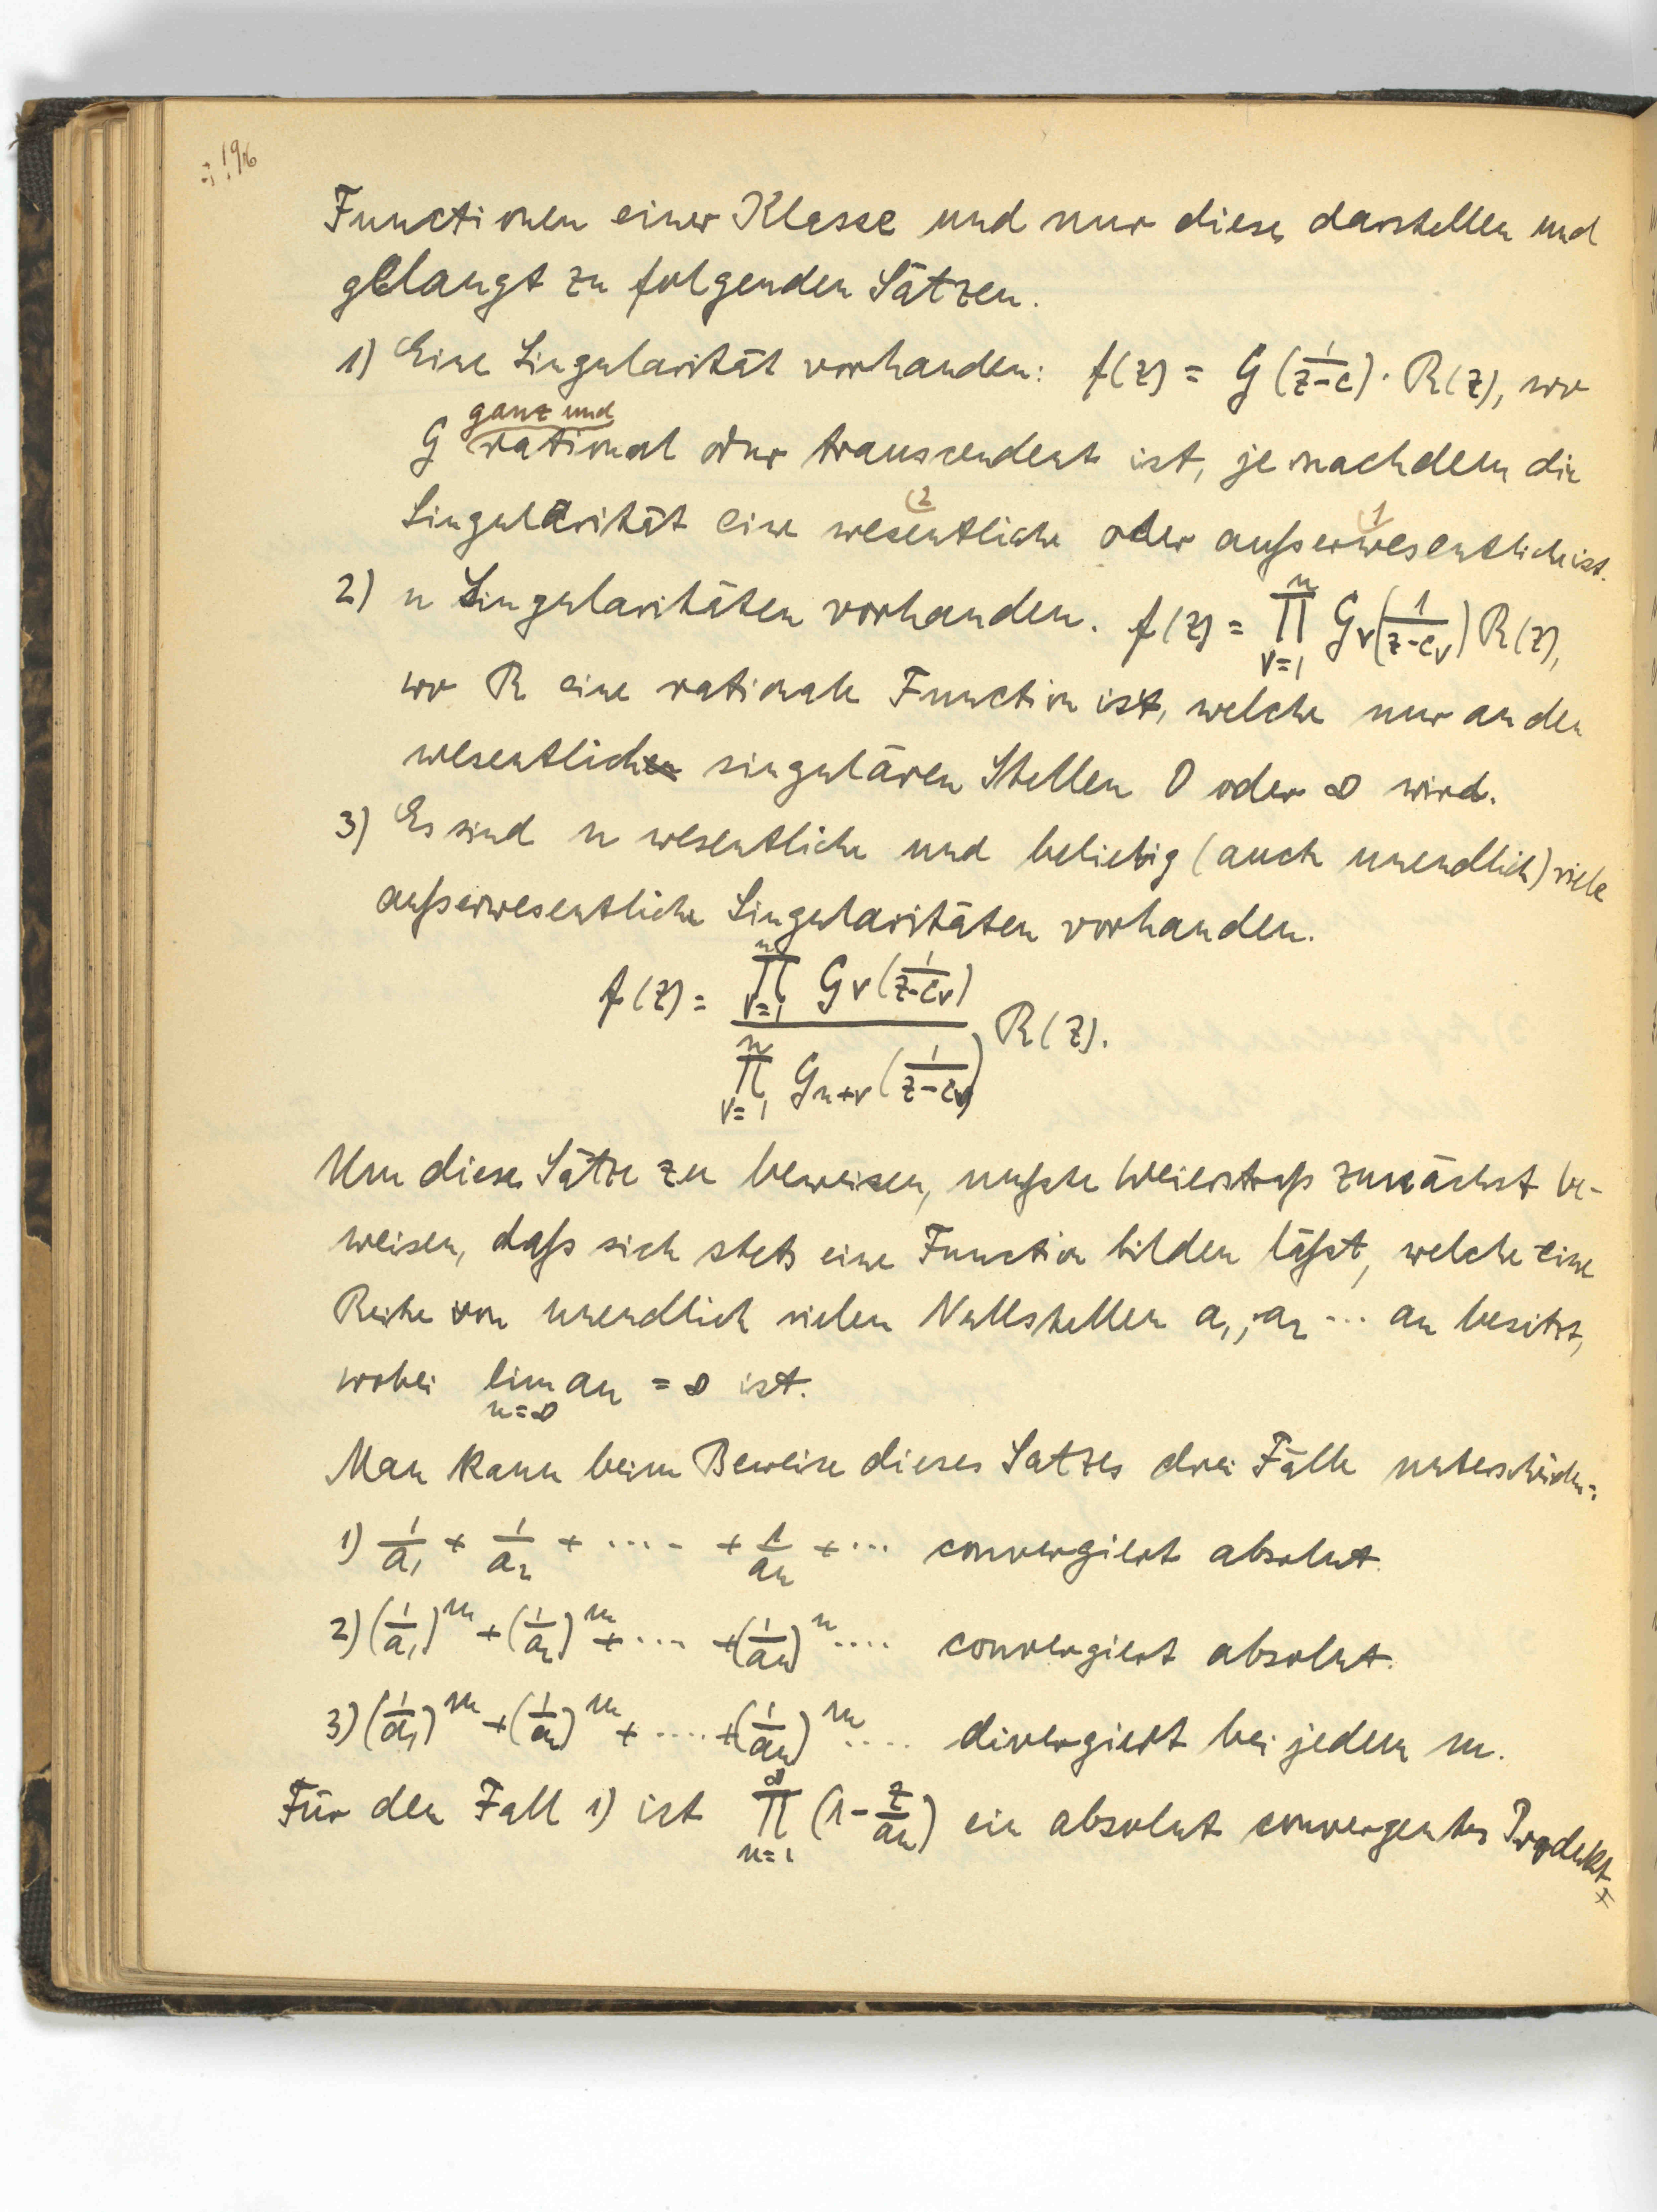 196
Functionen einer Klasse und nur diese darstellen und
gelangt zu folgenden Sätzen.
1) Eine Singularität vorhanden: f(z) = G(1/(z-c)) · R(z), wo
ganz und
G rational oder transcendent ist, je nachdem die
(2 (1
Singularität eine wesentliche oder außerwesentliche ist.
2) n Singularitäten vorhanden. f(z) = ∏_{ν=1}^{n} G_ν(1/(z-c_ν)) R(z),
wo R eine rationale Function ist, welche nur an den
wesentlich singulären Stellen 0 oder ∞ wird.
3) Es sind n wesentliche und beliebig (auch unendlich) viele
außerwesentliche Singularitäten vorhanden.
f(z) = ∏_{ν=1}^{n} G_ν(1/(z-c_ν)) / ∏_{ν=1}^{n} G_{n+ν}(1/(z-c_ν)) R(z).
Um diese Sätze zu beweisen, mußte Weierstraß zunächst be-
weisen, daß sich stets eine Function bilden läßt, welche eine
Reihe von unendlich vielen Nullstellen a_1, a_2 ... a_n besitzt,
wobei lim_{n=∞} a_n = ∞ ist.
Man kann beim Beweise dieses Satzes drei Fälle unterscheiden:
1) 1/a_1 + 1/a_2 + ..... + 1/a_n + ... convergiert absolut.
2) (1/a_1)^m + (1/a_2)^m + .... + (1/a_n)^n .... convergiert absolut.
3) (1/a_1)^m + (1/a_2)^m + .... + (1/a_n)^m .... divergiert bei jedem m.
Für den Fall 1) ist ∏_{n=1}^{∞} (1 - z/a_n) ein absolut convergentes Produkt,